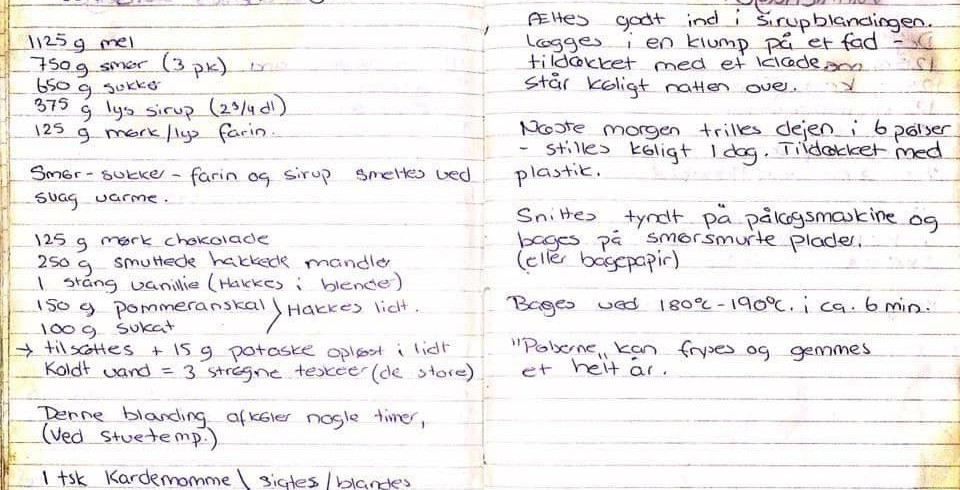 1125 g mel
750 g smør (3 pk)
650 g sukker
375 g lys sirup (2 3/4 dl)
125 g mørk/lys farin.
Smør - sukker - farin og sirup smeltes ved
svag varme.
125 g mørk chokolade
250 g smuttede hakkede mandler
1 stang vanillie (Hakkes i blender)
150 g pommeranskal } Hakkes lidt.
100 g sukat
→ tilsættes + 15 g potaske opløst i lidt
koldt vand = 3 strøgne teskeer (de store)
Denne blanding afkøler nogle timer,
(Ved stuetemp.)
1 tsk Kardemomme \ sigtes / blandes
Æltes godt ind i sirupblandingen.
Lægges i en klump på et fad -
tildækket med et klæde
står køligt natten over.
Næste morgen trilles dejen i 6 pølser
- stilles køligt 1 dag. Tildækket med
plastik.
Snittes tyndt på pålægsmaskine og
bages på smørsmurte plader.
(eller bagepapir)
Bages ved 180°c - 190°c. i ca. 6 min.
"Pølserne" kan fryses og gemmes
et helt år.